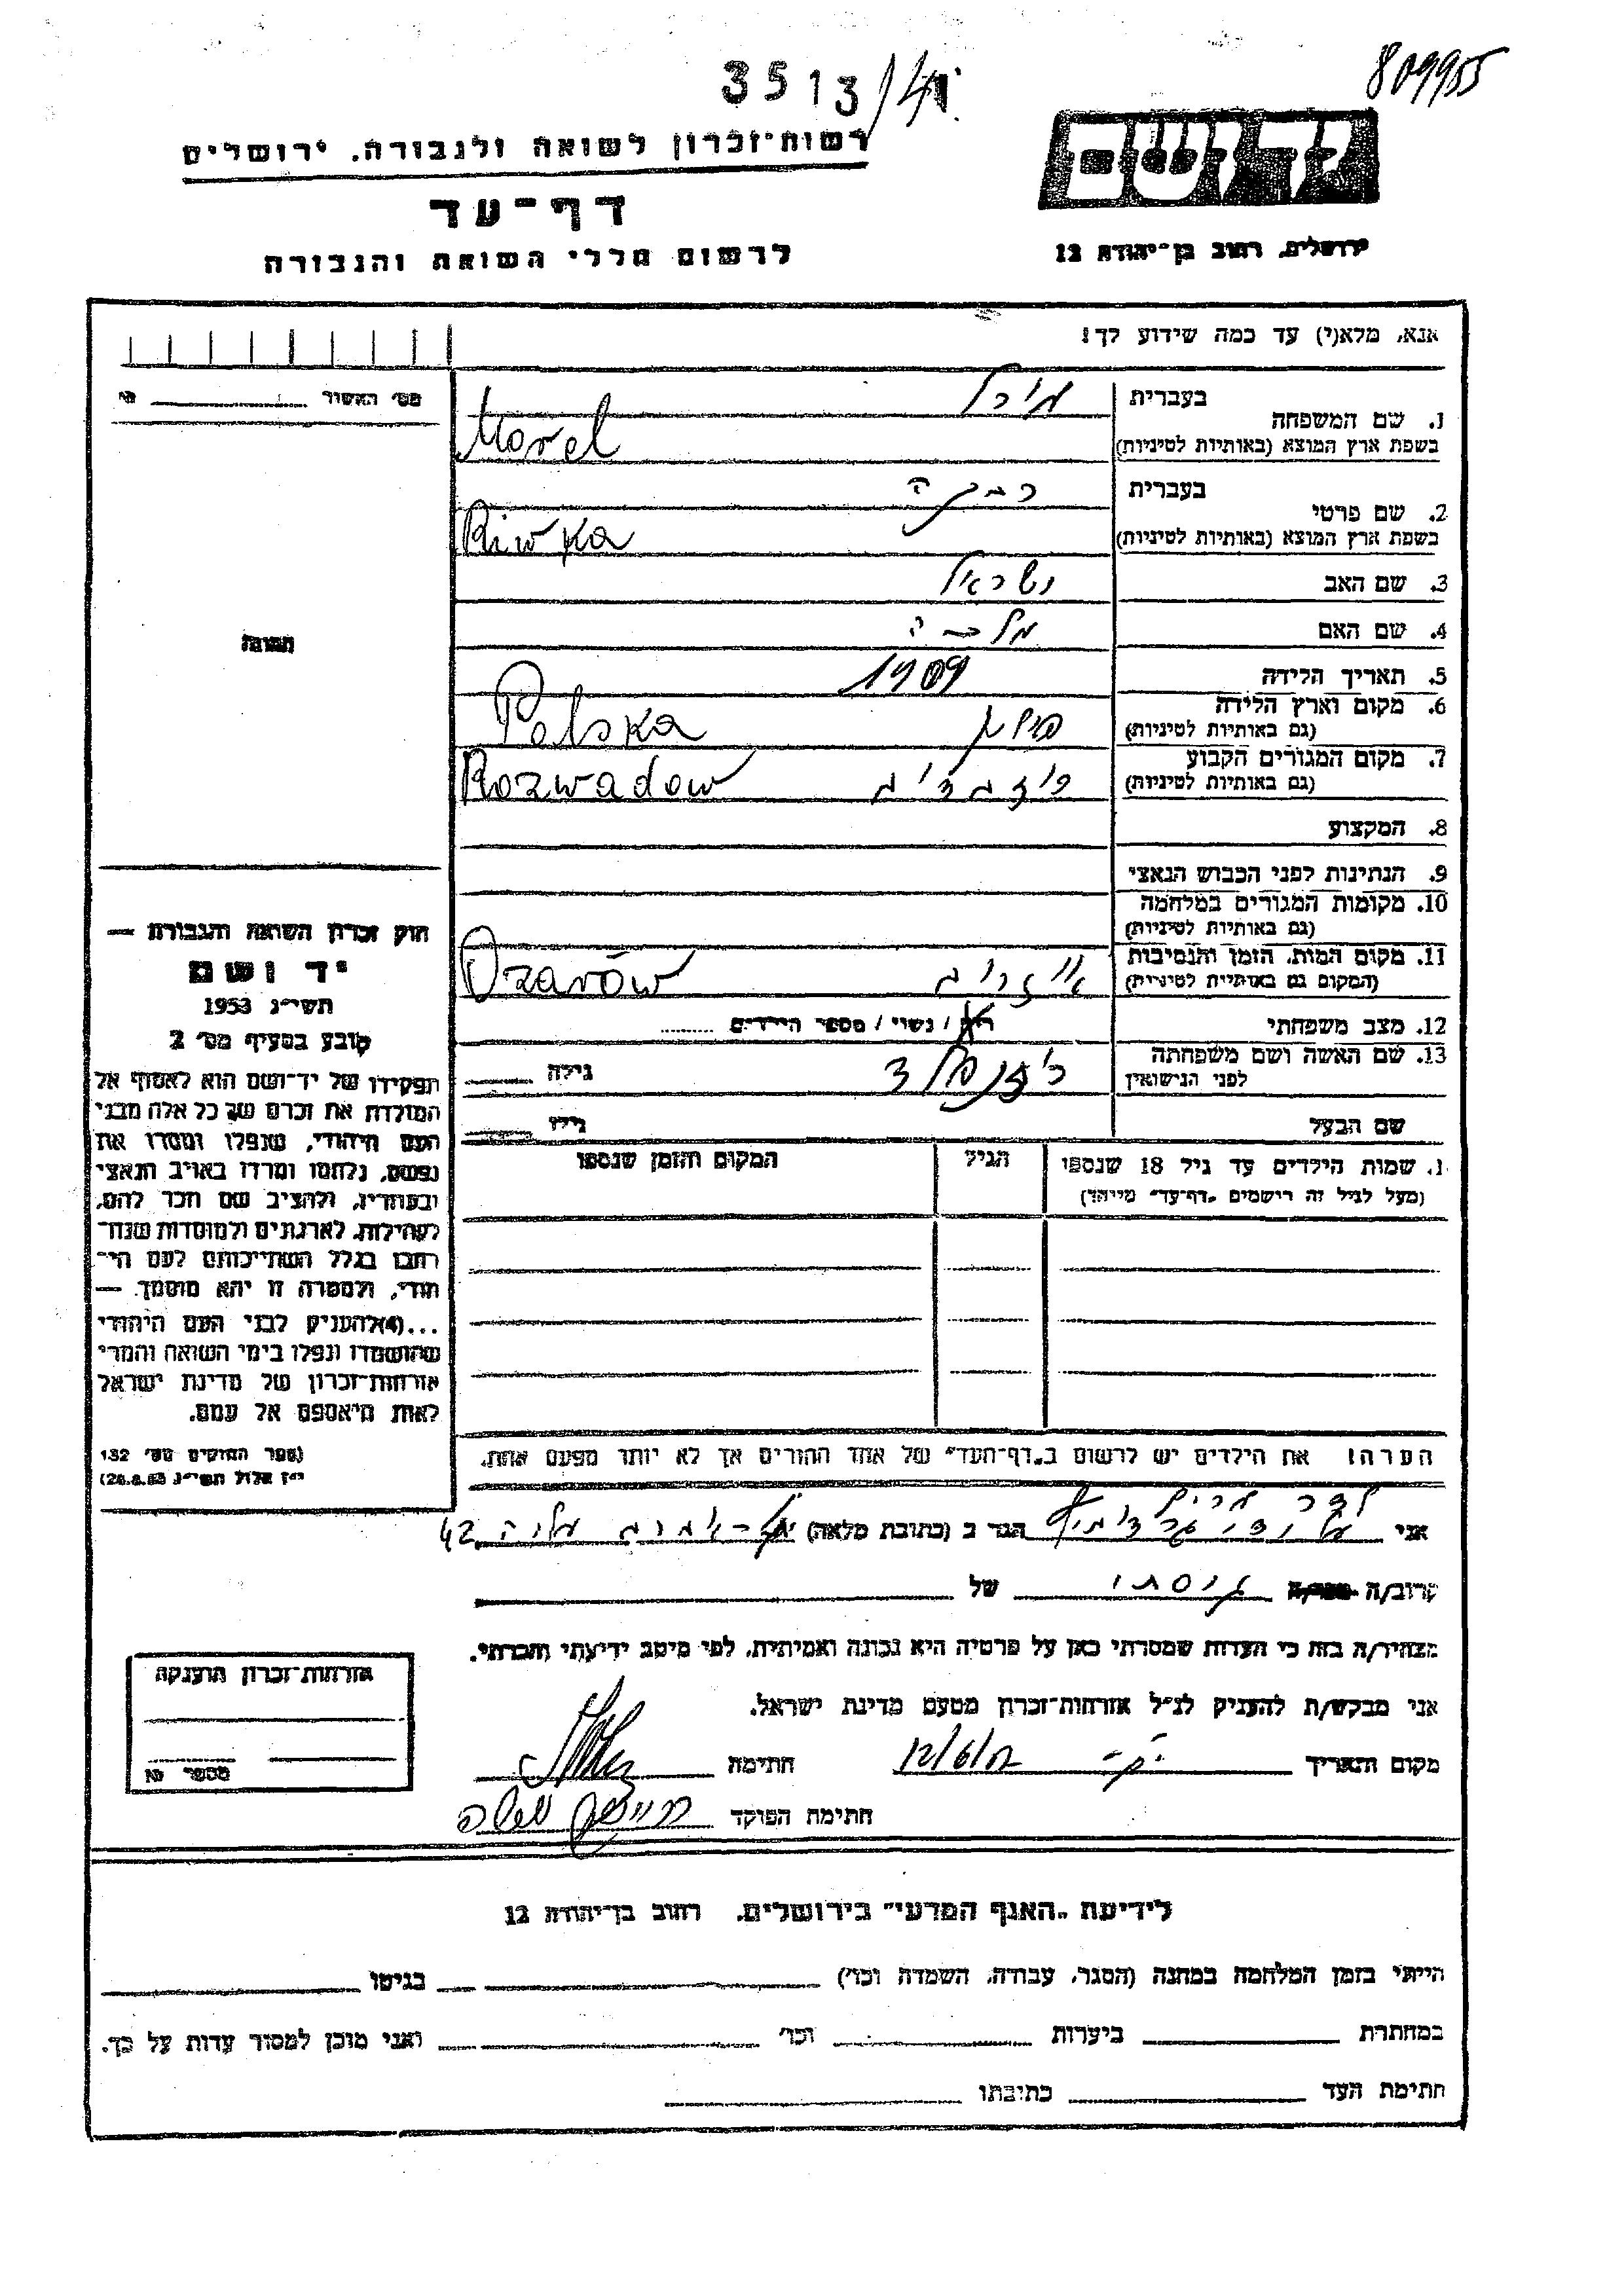 809955
3513/41
רשות־זכרון לשואה ולגבורה. ירושלים
דף־עד
לרשום חללי השואה והגבורה
יד ושם
ירושלים, רחוב בן־יהודה 12
אנא, מלא(י) עד כמה שידוע לך!
מס׳ האשור
1. שם המשפחה
בעברית
בשפת ארץ המוצא (באותיות לטיניות)
Morel
2. שם פרטי
בעברית רבקה
בשפת ארץ המוצא (באותיות לטיניות) Riwka
3. שם האב ישראל
4. שם האם מלכה
5. תאריך הלידה 1909
6. מקום וארץ הלידה
(גם באותיות לטיניות) פולין Polska
7. מקום המגורים הקבוע
(גם באותיות לטיניות) Rozwadow
8. המקצוע
9. הנתינות לפני הכבוש הנאצי
10. מקומות המגורים במלחמה
(גם באותיות לטיניות)
11. מקום המות, הזמן והנסיבות
(המקום גם באותיות לטיניות) Ozarów
12. מצב משפחתי
רווק / נשוי / מספר הילדים
13. שם האשה ושם משפחתה
לפני הנישואין גילה
שם הבעל גילו
שמות הילדים עד גיל 18 שנספו
(מעל לגיל זה רישמים „דף־עד״ מייוחד)
הגיל
המקום והזמן שנספו
הערה! את הילדים יש לרשום ב„דף־העד״ של אחד ההורים אך לא יותר מפעם אחת.
תמונה
חוק זכרון השואה והגבורה —
יד ושם
תשי״ג 1953
קובע בסעיף מס׳ 2
תפקידו של יד־ושם הוא לאסוף אל
המולדת את זכרם של כל אלה מבני
העם היהודי, שנפלו ומסרו את
נפשם, נלחמו ומרדו באויב הנאצי
ובעוזריו, ולהציב שם וזכר להם,
לקהילות, לארגונים ולמוסדות שנח־
רבו בגלל השתייכותם לעם הי־
הודי, ולמטרה זו יהא מוסמך —
...(4)להעניק לבני העם היהודי
שהושמדו ונפלו בימי השואה והמרי
אזרחות־זכרון של מדינת ישראל
לאות היאספם אל עמם.
(ספר החוקים מס׳ 132
י״ז אלול תשי״ג 28.8.53)
אני
הגר ב (כתובת מלאה) 42
קרוב/ה גיסתו של
מצהיר/ה בזה כי העדות שמסרתי כאן על פרטיה היא נכונה ואמיתית, לפי מיטב ידיעתי והכרתי.
אני מבקש/ת להעניק לנ״ל אזרחות־זכרון מטעם מדינת ישראל.
מקום ותאריך חתימה
חתימת הפוקד
אזרחות־זכרון הוענקה
מספר
לידיעת „האגף המדעי״ בירושלים, רחוב בן־יהודה 12
הייתי בזמן המלחמה במחנה (הסגר, עבודה, השמדה וכו׳) בגיטו
במחתרת ביערות וכו׳ ואני מוכן למסור עדות על כך.
חתימת העד כתיבתו